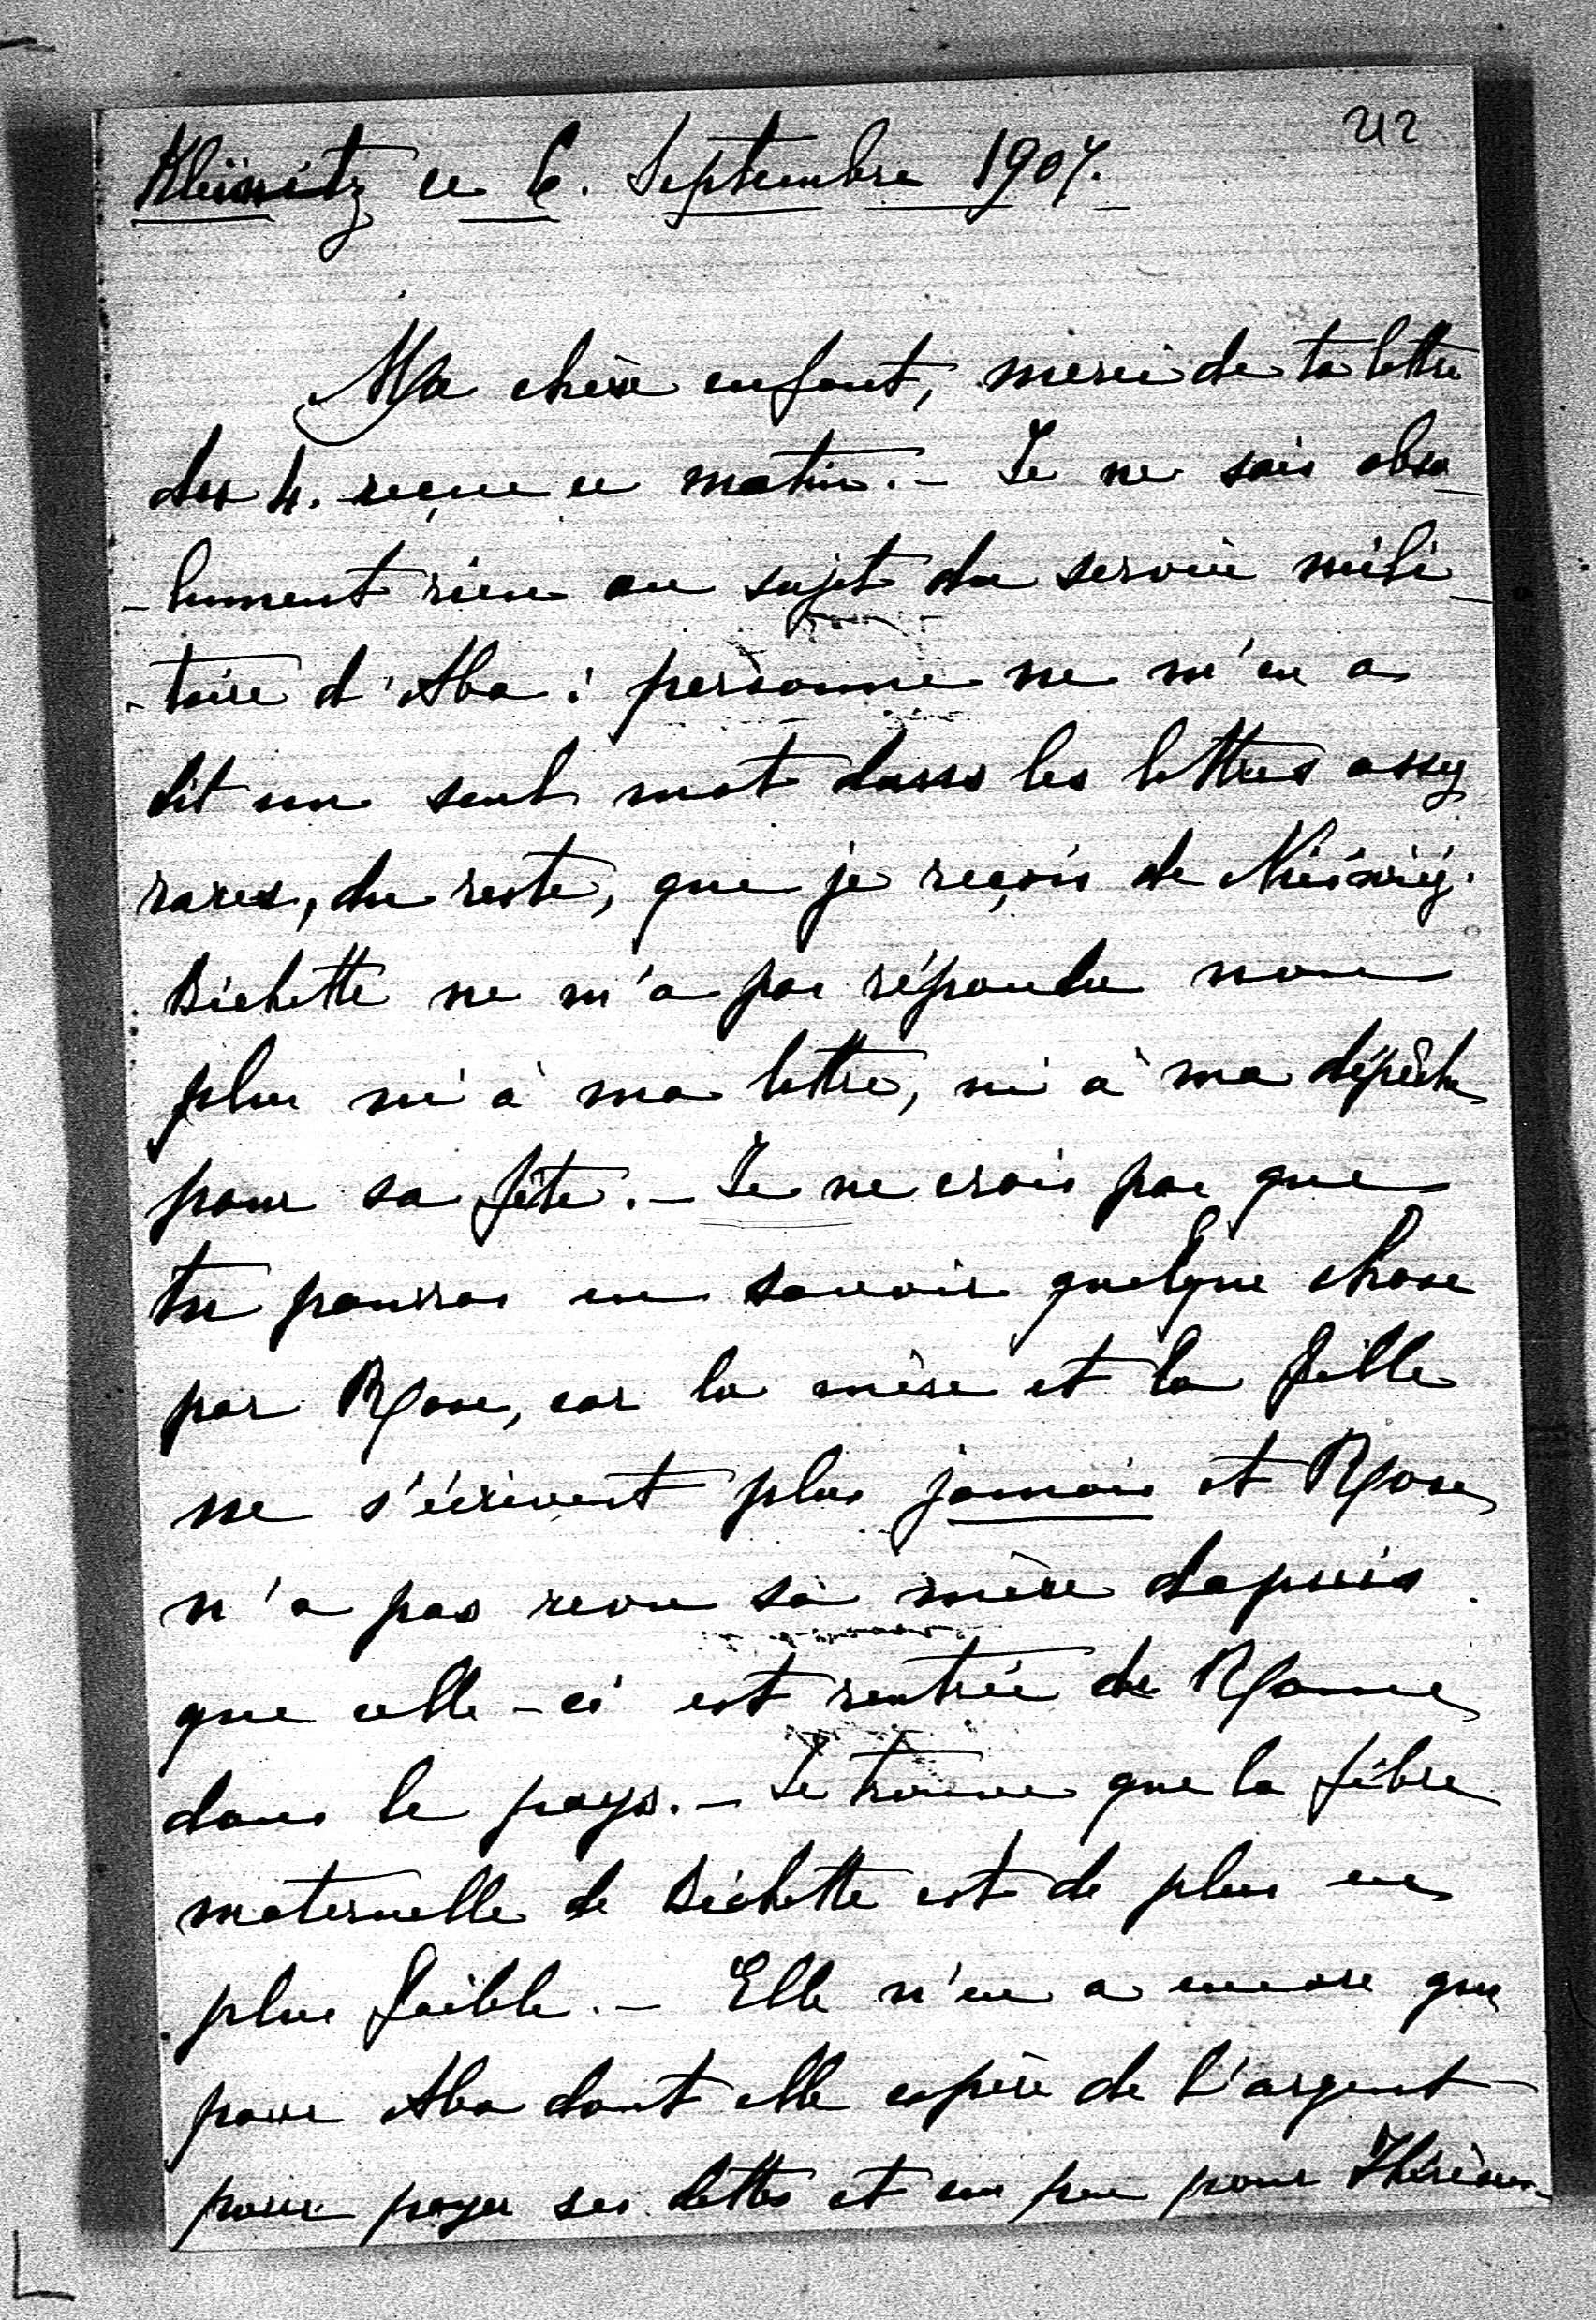 212
Kleinitz ce 6. Septembre 1907.
Ma chère enfant, merci de ta lettre
du 4. reçue ce matin. – Je ne sais abso-
-lument rien au sujet du service mili-
-taire d'Aba : personne ne m'en a
dit un seul mot dans les lettres assez
rares, du reste, que je reçois de Nieśwież.
Bichette ne m'a pas répondu non
plus ni à ma lettre, ni à ma dépêche
pour sa fête. – Je ne crois pas que
tu pourras en savoir quelque chose
par Rose, car la mère et la fille
ne s'écrivent plus jamais et Rose
n'a pas revu sa mère depuis
que celle-ci est rentrée de Rome
dans le pays. – Je trouve que la fibre
maternelle de Bichette est de plus en
plus faible. – Elle n'en a encore que
pour Aba dont elle espère de l'argent
pour payer ses dettes et un peu pour Thérèse.